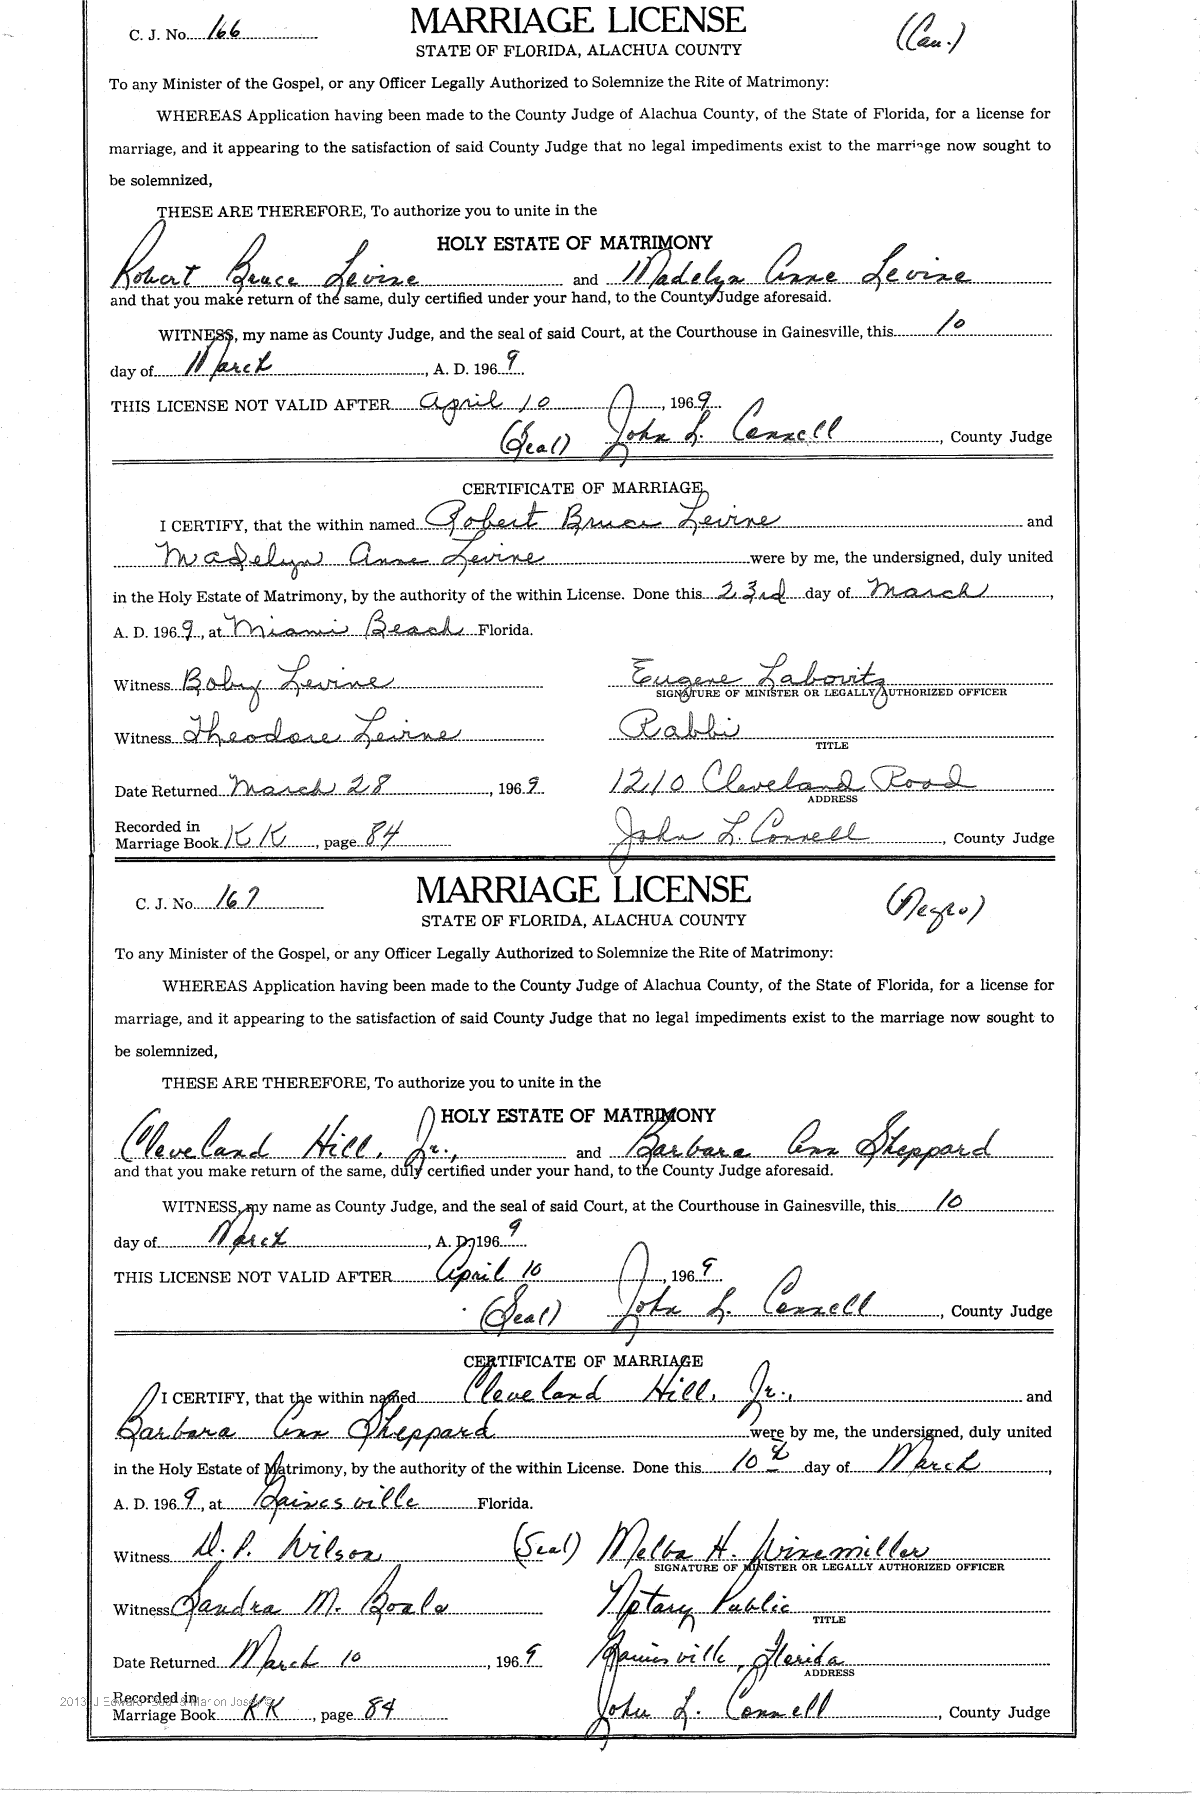 C. J. No. 166
MARRIAGE LICENSE
(Cau.)
STATE OF FLORIDA, ALACHUA COUNTY
To any Minister of the Gospel, or any Officer Legally Authorized to Solemnize the Rite of Matrimony:
WHEREAS Application having been made to the County Judge of Alachua County, of the State of Florida, for a license for
marriage, and it appearing to the satisfaction of said County Judge that no legal impediments exist to the marriage now sought to
be solemnized,
THESE ARE THEREFORE, To authorize you to unite in the
HOLY ESTATE OF MATRIMONY
Robert Bruce Levine and Madelyn Anne Levine
and that you make return of the same, duly certified under your hand, to the County Judge aforesaid.
WITNESS, my name as County Judge, and the seal of said Court, at the Courthouse in Gainesville, this 10
day of March, A. D. 1969
THIS LICENSE NOT VALID AFTER April 10, 1969
(Seal) John L. Connell, County Judge
CERTIFICATE OF MARRIAGE
I CERTIFY, that the within named Robert Bruce Levine and
Madelyn Anne Levine were by me, the undersigned, duly united
in the Holy Estate of Matrimony, by the authority of the within License. Done this 23rd day of March,
A. D. 1969, at Miami Beach Florida.
Witness Boby Levine Eugene Labovitz
SIGNATURE OF MINISTER OR LEGALLY AUTHORIZED OFFICER
Witness Theodore Levine Rabbi
TITLE
Date Returned March 28, 1969 1210 Cleveland Road
ADDRESS
Recorded in
Marriage Book KK, page 84 John L. Connell, County Judge
C. J. No. 167
MARRIAGE LICENSE
(Negro)
STATE OF FLORIDA, ALACHUA COUNTY
To any Minister of the Gospel, or any Officer Legally Authorized to Solemnize the Rite of Matrimony:
WHEREAS Application having been made to the County Judge of Alachua County, of the State of Florida, for a license for
marriage, and it appearing to the satisfaction of said County Judge that no legal impediments exist to the marriage now sought to
be solemnized,
THESE ARE THEREFORE, To authorize you to unite in the
HOLY ESTATE OF MATRIMONY
Cleveland Hill, Jr., and Barbara Ann Sheppard
and that you make return of the same, duly certified under your hand, to the County Judge aforesaid.
WITNESS, my name as County Judge, and the seal of said Court, at the Courthouse in Gainesville, this 10
day of March, A. D. 1969
THIS LICENSE NOT VALID AFTER April 10, 1969
(Seal) John L. Connell, County Judge
CERTIFICATE OF MARRIAGE
I CERTIFY, that the within named Cleveland Hill, Jr., and
Barbara Ann Sheppard were by me, the undersigned, duly united
in the Holy Estate of Matrimony, by the authority of the within License. Done this 10th day of March,
A. D. 1969, at Gainesville Florida.
Witness D. P. Wilson (Seal) Melba H. Winemiller
SIGNATURE OF MINISTER OR LEGALLY AUTHORIZED OFFICER
Witness Sandra M. Notary Public
TITLE
Date Returned March 10, 1969 Gainesville, Florida
ADDRESS
Recorded in
Marriage Book KK, page 84 John L. Connell, County Judge